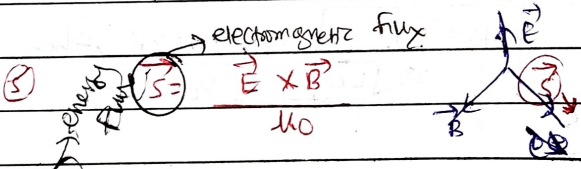 electromagnetic flux
⑤ energy flux S⃗ = E⃗ × B⃗ / μ0
E⃗
B⃗ S⃗